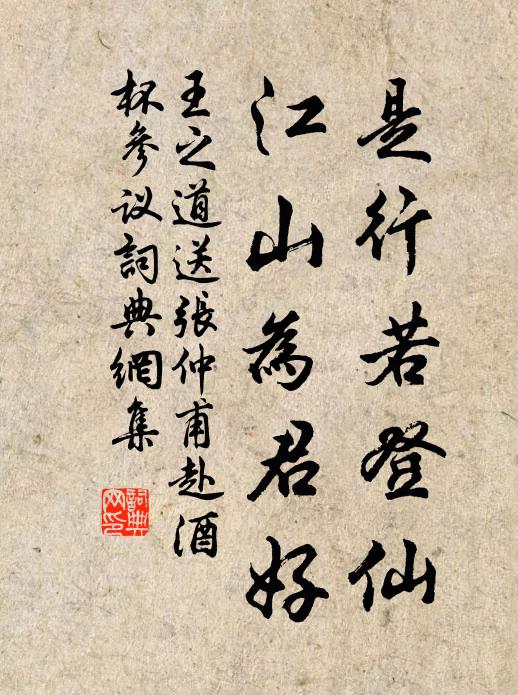 是行若登仙
江山為君好
王之道送張仲甫赴酒
杯參议詞典網集
詞典
网印